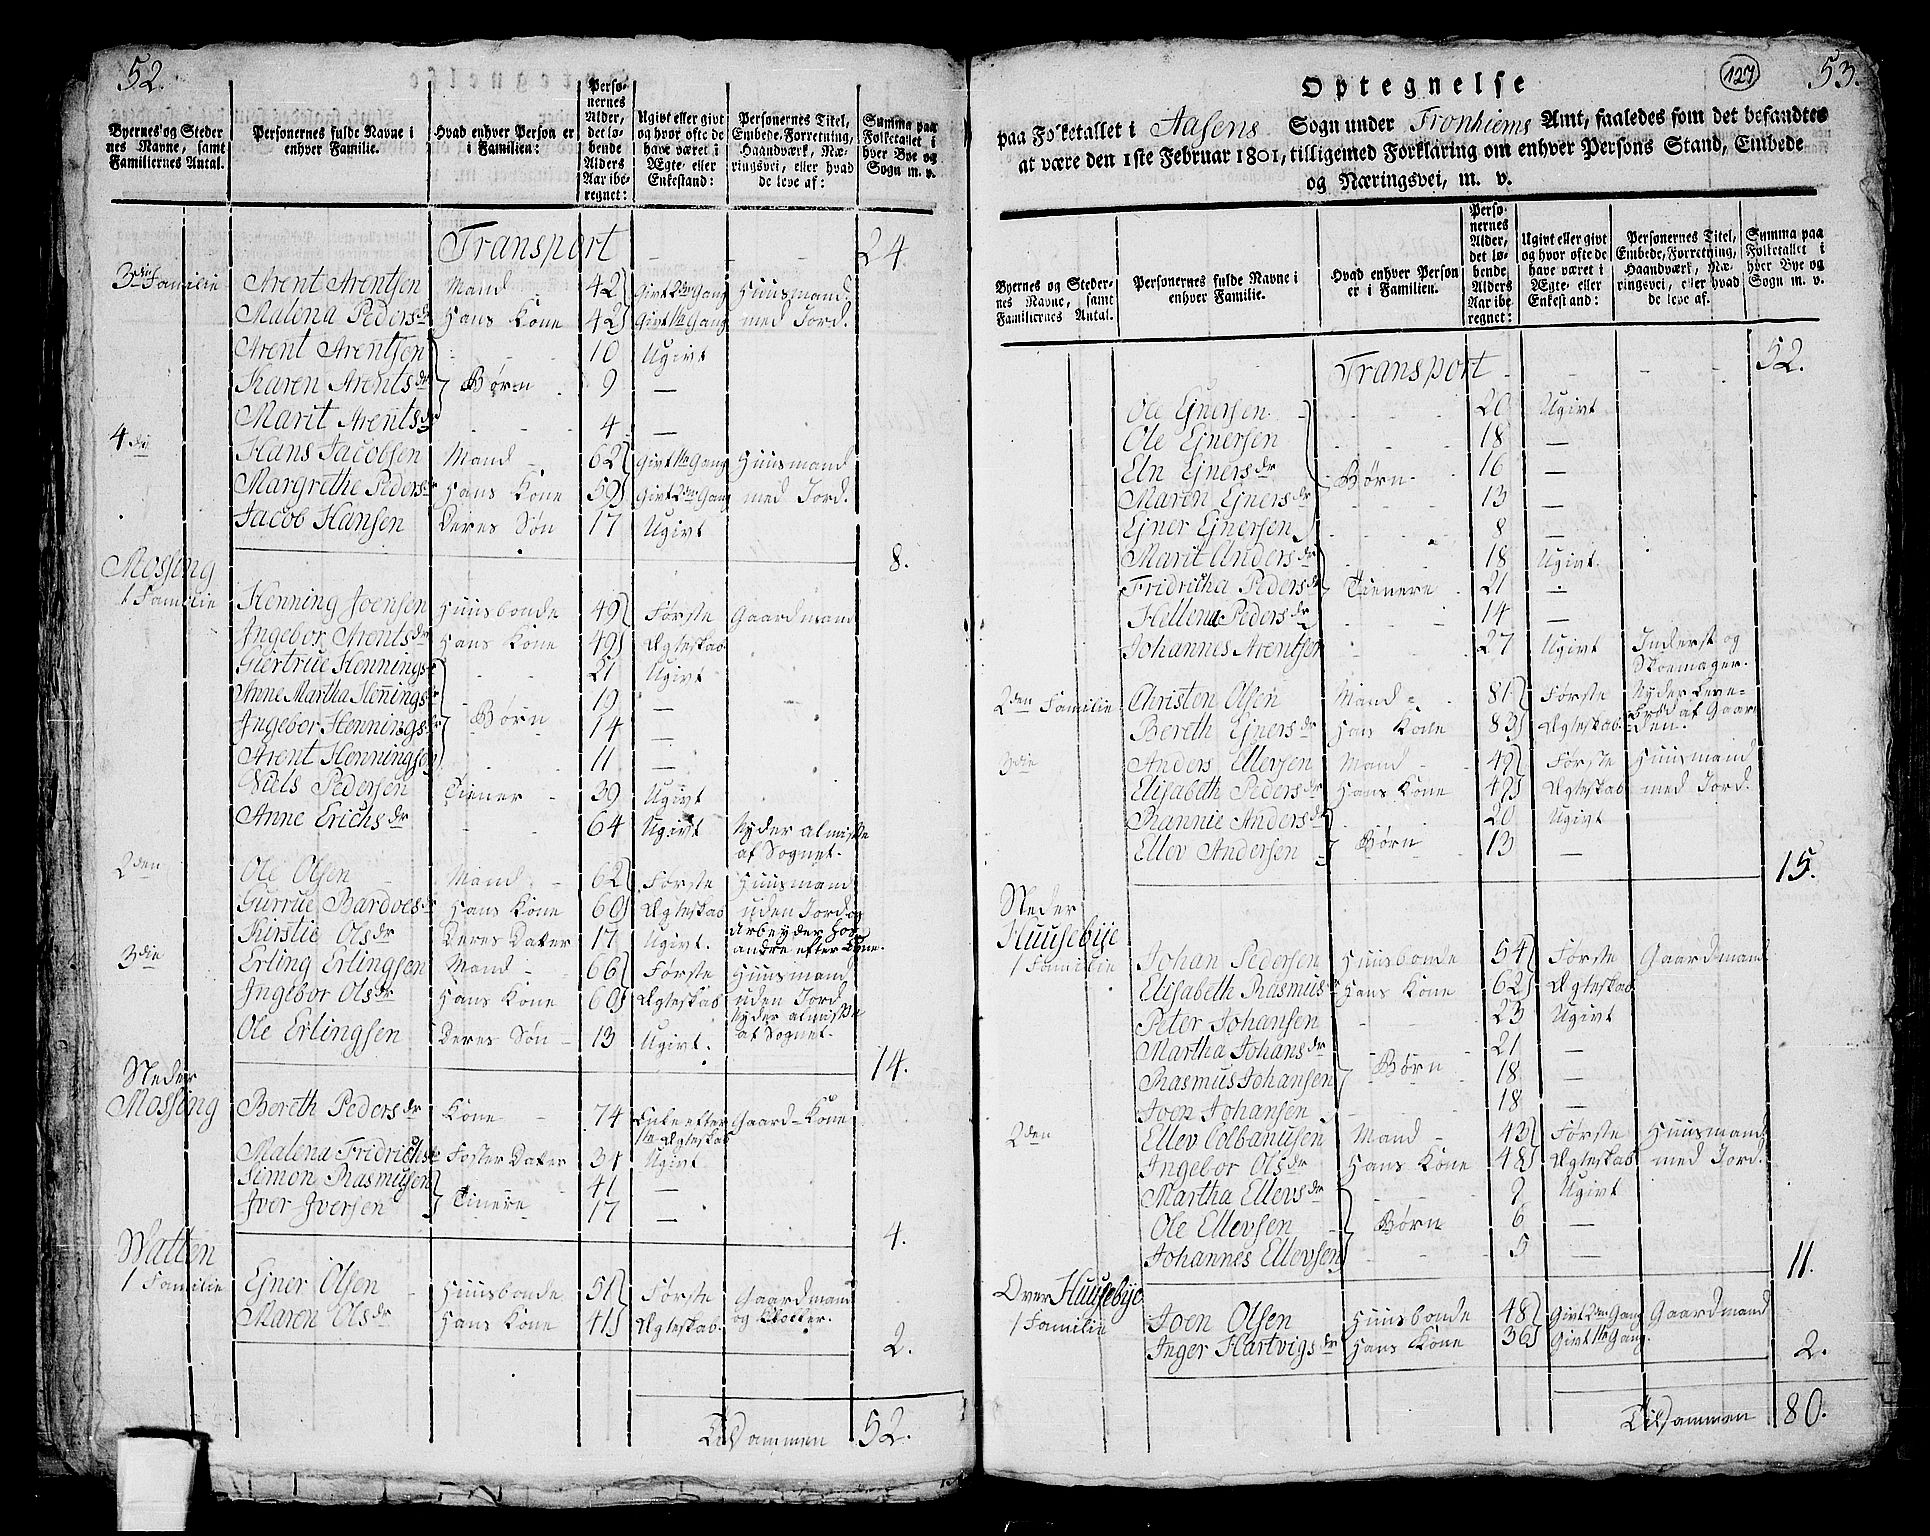 52.
Byernes og Steder
nes Navne, samt
Familiernes Antal.
Personernes fulde Navne i
enhver Familie.
Hvad enhver Person er
i Familien:
Perso-
nernes
Alder,
det lø-
bende
Alders
Aar ibe-
regnet:
Ugivt eller givt
og hvor ofte de
have været i
Ægte- eller
Enkestand:
Personernes Titel,
Embede, Forretning,
Haandværk, Næ-
ringsvei, eller hvad
de leve af:
Summa paa
Folketallet i
hver Bye og
Sogn m. v.
Transport - - 24.
3die Familie Arent Arentsen Mand 42 Givt 2den Gang Huusmand
Malena Pedersdr Hans Kone 42 Givt 1te Gang med Jord.
Arent Arentsen 10 Ugivt
Karen Arentsdr Børn 9 —
Marit Arentsdr 4 —
4die Hans Jacobsen Mand 62 Givt 1te Gang Huusmand
Margrethe Pedersdr Hans Kone 59 Givt 2den Gang med Jord.
Jacob Hansen Deres Søn 17 Ugivt
Mossing 8.
1 Familie Henning Joensen Huusbonde 49 Første Gaardmand
Ingebor Arentsdr Hans Kone 49 Ægteskab
Giertrue Hennings 21 Ugivt
Anne Martha Hennings 19 —
Ingebor Henningsdr Børn 14 —
Arent Henningsen 11 —
Niels Pedersen Tiener 39 Ugivt
Anne Erichsdr 64 Ugivt Nyder almisse
af Sognet.
2den Ole Olsen Mand 62 Første Huusmand
Gurrue Bardoesdr Hans Kone 60 Ægteskab uden Jord og
Kirstie Olsdr Deres Dater 17 Ugivt. arbeyder hos
andre efter Evne.
3die Erling Erlingsen Mand 66 Første Huusmand
Ingebor Olsdr Hans Kone 60 Ægteskab uden Jord
Nyder almisse
Ole Erlingsen Deres Søn 13 Ugivt. af Sognet.
14.
Neder
Mossing Bereth Pedersdr Kone 74 Enke efter Gaard-Kone
1te Ægteskab
Malena Fridrichsdr Foster Dater 31 Ugivt
Simon Rasmusen 41 —
Iver Iversen Tienere 17 —
4.
Watten
1 Familie Ejner Olsen Huusbonde 51 Første Gaardmand
Maren Olsdr Hans Kone 41 Ægteskab. og Klocker.
2.
Tilsammen 52.
127
53.
Optegnelse
paa Folketallet i Aasens Sogn under Tronhiems Amt, saaledes som det befandtes
at være den 1ste Februar 1801, tilligemed Forklaring om enhver Persons Stand, Embede
og Næringsvei, m. v.
Byernes og Steder-
nes Navne, samt
Familiernes Antal.
Personernes fulde Navne i
enhver Familie.
Hvad enhver Person
er i Familien.
Perso-
nernes
Alder,
det lø-
bende
Alders
Aar ibe-
regnet:
Ugivt eller givt
og hvor ofte de
have været i
Ægte- eller
Enkestand:
Personernes Titel,
Embede, Forretning,
Haandværk, Næ-
ringsvei, eller hvad
de leve af.
Summa paa
Folketallet i
hver Bye og
Sogn m. v.
Transport - - - 52.
Ole Ejnersen 20 Ugivt
Ole Ejnersen 18 —
Eln Ejnersdr Børn 16 —
Maren Ejnersdr 13 —
Ejner Ejnersen 8 —
Marit Andersdr 18 Ugivt.
Fridricha Pedersdr Tienere 21 —
Hellena Pedersdr 14 —
Johannes Arentsen 27 Ugivt Inderst og
Skoemager.
2den Familie Christen Olsen Mand 81 Første Nyder Leve-
Bereth Ejnersdr Hans Kone 83 Ægteskab brød af Gaar-
den.
3die Anders Ellevsen Mand 49 Første Huusmand
Elisabeth Pedersdr Hans Kone 49 Ægteskab med Jord.
Rannie Andersdr 20 Ugivt
Ellev Andersen Børn 13 —
15.
Neder
Huusebye
1 Familie Johan Pedersen Huusbonde 54 Første Gaardmand
Elisabeth Rasmusdr Hans Kone 62 Ægteskab
Peter Johansen 23 Ugivt
Martha Johansdr 21 —
Rasmus Johansen Børn 18 —
Joen Johansen 18 —
2den Ellev Colbanusen Mand 43 Første Huusmand
Ingebor Olsdr Hans Kone 48 Ægteskab med Jord.
Martha Ellevsdr 9 Ugivt
Ole Ellevsen Børn 6 —
Johannes Ellevsen 5 —
11.
Over Huusebye
1 Familie Joen Olsen Huusbonde 48 Givt 2den Gang Gaardmand
Inger Hartvigsdr Hans Kone 36 Givt 1te Gang
2.
Tilsammen 80.